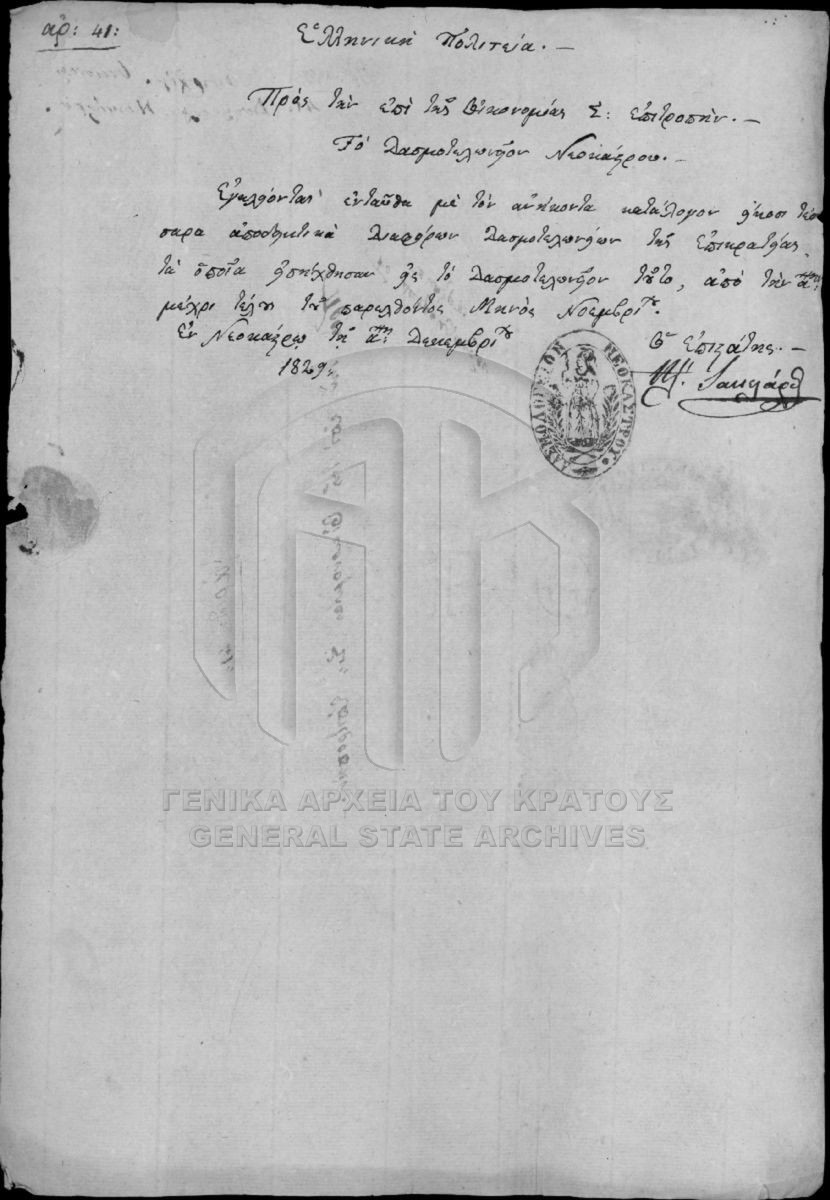 ἀρ: 41:
Ἑλληνικὴ Πολιτεία. —
Πρὸς τὴν ἐπὶ τῆς Οἰκονομίας Σ: ἐπιτροπήν. —
Τὸ Δασμοτελωνεῖον Νεοκάστρου. —
Ἐγκλείονται ἐνταῦθα μὲ τὸν ἀνήκοντα κατάλογον εἴκοσι τέσ
σαρα ἀποδεικτικὰ διαφόρων Δασμοτελωνείων τῆς Ἐπικρατείας,
τὰ ὁποῖα εἰσήχθησαν εἰς τὸ Δασμοτελωνεῖον τοῦτο, ἀπὸ τὴν αην:
μέχρι τέλους τοῦ παρελθόντος Μηνὸς Νοεμβρίου.
Ἐν Νεοκάστρῳ τῇ αῃ: Δεκεμβρίου
1829,,
Ὁ Ἐπιστάτης. —
ΔΑΣΜΟΛΟΓΕΙΟΝ ΝΕΟΚΑΣΤΡΟΥ
ΓΕΝΙΚΑ ΑΡΧΕΙΑ ΤΟΥ ΚΡΑΤΟΥΣ
GENERAL STATE ARCHIVES